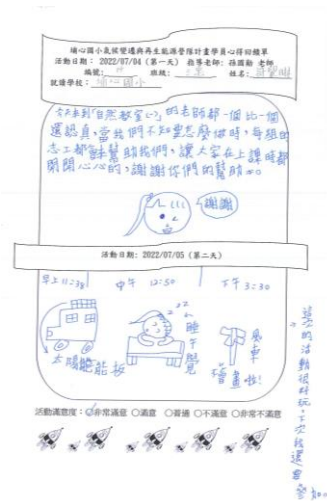 埔心國小氣候變遷與再生能源營隊計畫學員心得回饋單
活動日期: 2022/07/04 (第一天) 指導老師: 孫國勛 老師
編號: 班級: 姓名:
就讀學校: 埔心國小
今天來到「自然教室」的老師都一個比一個
還認真,當我們不知要怎麼做時,每組的
志工都會幫助我們,讓大家在上課時都
開開心心的,謝謝你們的幫助
謝謝
活動日期: 2022/07/05 (第二天)
早上11:38 中午 12:50 下午 3:30
太陽能板
睡午覺
風車
不會畫啦!
這次的活動很好玩,下次我還要參加
活動滿意度: 非常滿意 ○滿意 ○普通 ○不滿意 ○非常不滿意